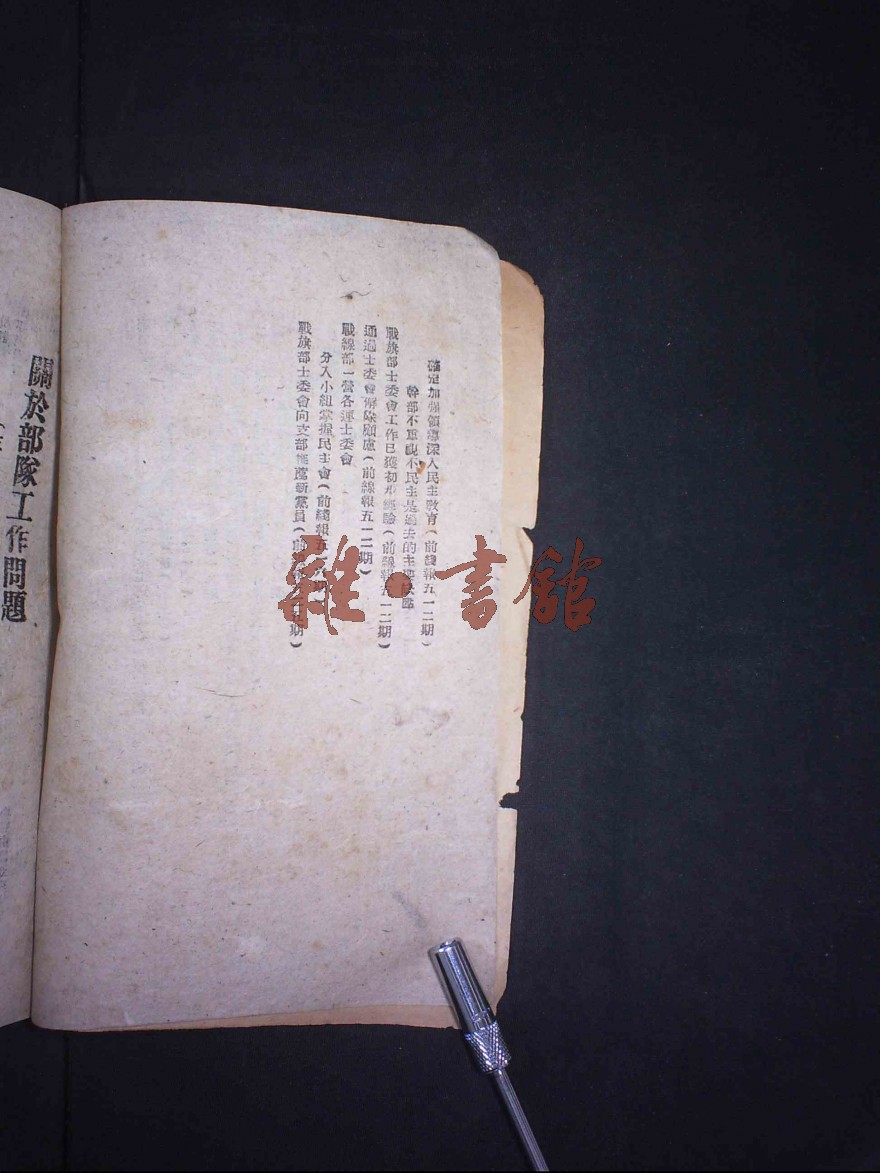 確定加强領導深入民主敎育(前綫報五一二期)
幹部不重視不民主是過去的主要缺點
戰旗部士委會工作已獲初步經驗(前線報五一二期)
通過士委會解除顧慮(前線報五一二期)
戰線部一營各連士委會
分入小組掌握民主會(前綫報五一
戰旗部士委會向支部推薦新黨員(前 期)
關於部隊工作問題
雜·書館